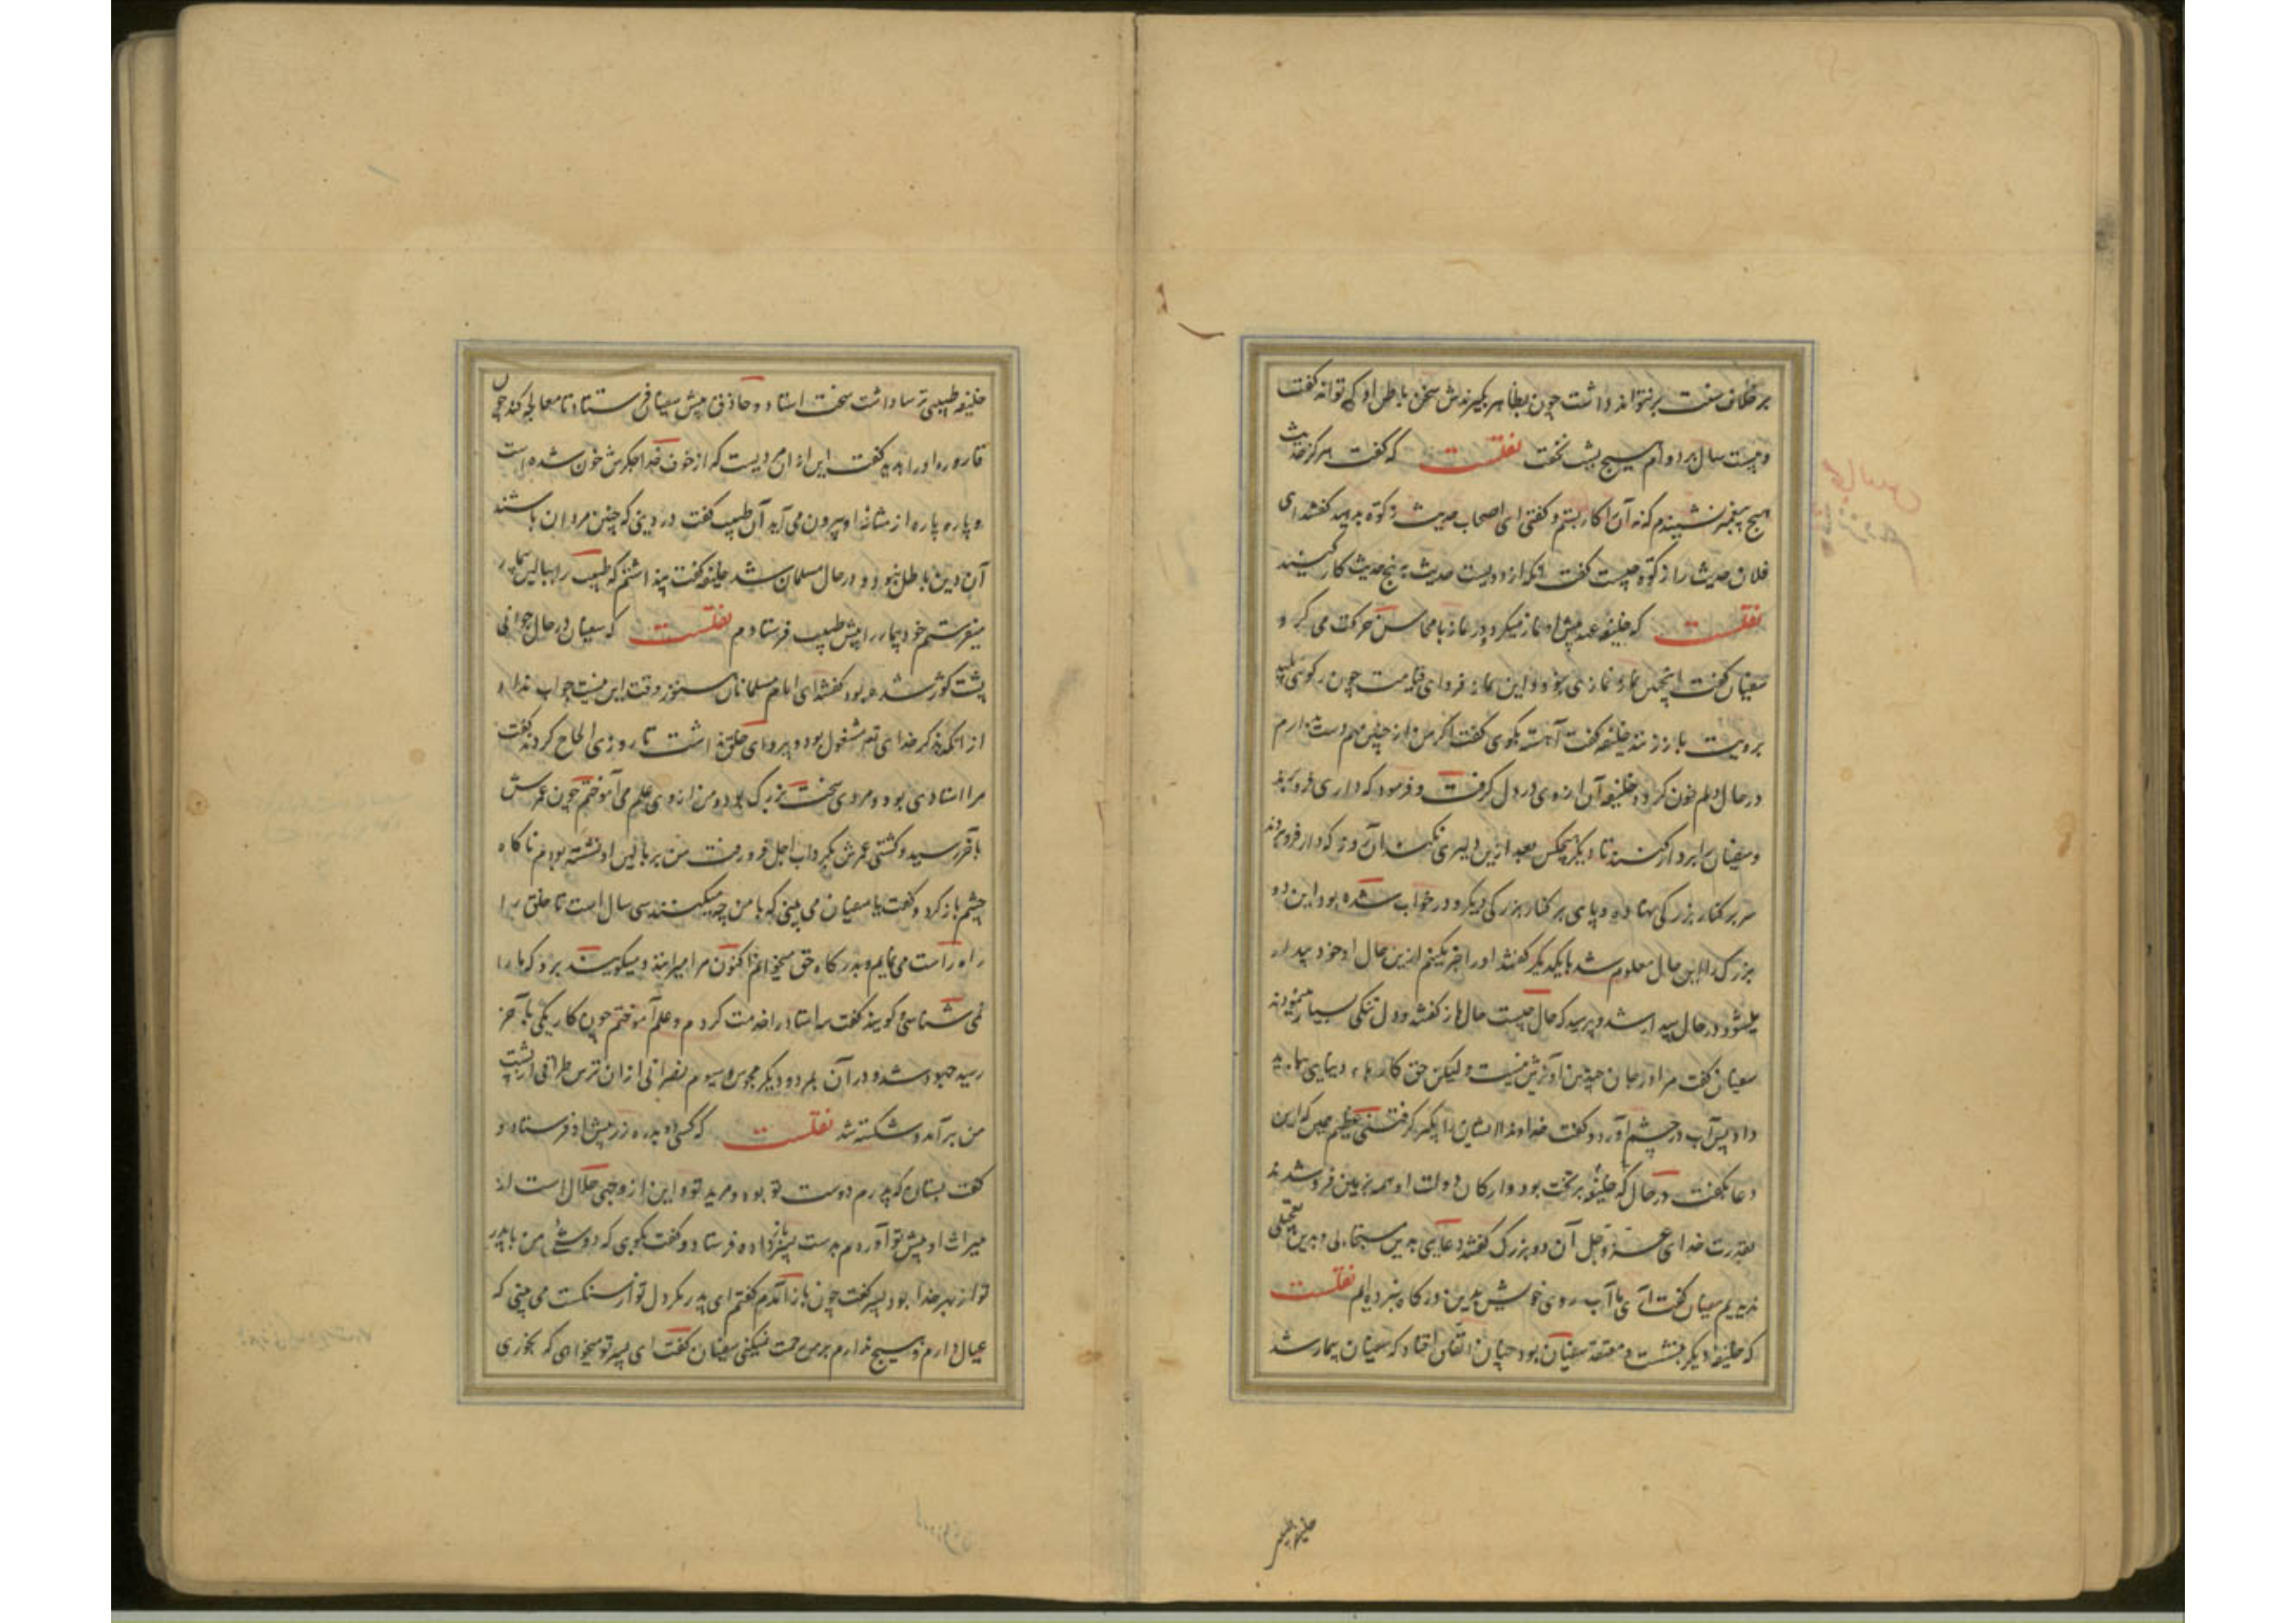 بر خلاف سنت بر نتواند داشت چون بظاهر بگیرندش سخن باطن او که تواند گفت
و بیست سال بر دوام هیچ شب نخفت نقلست که گفت هرگز حدیث
هیچ پیغمبر نشنیدم که نه آن را کار بستم و گفتی ای اصحاب حدیث زکوة بدهید گفتند ای
فلان حدیث را زکوة چیست گفت آنکه از دویست حدیث به پنج حدیث کار کنید
نقلست که خلیفه عهد پیش او نماز میکرد و در نماز با محاسن حرکت می کرد
سفیان گفت اینچنین نماز نماز نمی بود و این نماز فردای قیامت چون رکوی پلید
برویت باز زنند خلیفه گفت آهسته بگوی گفت اگر من از چنین مهم دست بدارم
در حال دلم خون گردد خلیفه آن از وی در دل گرفت و فرمود که داری فرو برند
و سفیان را بردار کنند تا دیگر هیچکس بعد ازین دلیری نکند آن روز که دار فرو بردند
سر بر کنار بزرگی نهاده و پای بر کنار بزرگی دیگر و در خواب شده بود این دو
بزرگ را این حال معلوم شد با یکدیگر گفتند او را خبر نکنیم ازین حال او خود بیدار
میشود در حال بیدار شد و پرسید که حال چیست حال باز گفتند و دل تنگی بسیار نمودند
سفیان گفت مرا در جان چندین آویزش نیست و لیکن حق کارها دنیایی بباید
داد پس آب در چشم آورد و گفت خداوندا ایشان را بگیر گرفتنی عظیم همین که این
دعا بگفت در حال که خلیفه بر تخت بود و ارکان دولت او همه بزمین فرو شدند
بقدرت خدای عز و جل آن دو بزرگ گفتند دعایی بدین مستجابی و بدین تعجیلی
ندیدیم سفیان گفت آری ما آب روی خویش بدین درگاه نبرده ایم نقلست
که خلیفه دیگر بنشست و معتقد سفیان بود چنان اتفاق افتاد که سفیان بیمار شد
خلیفه طبیبی
خلیفه طبیبی ترسا داشت سخت استاد و حاذق پیش سفیان فرستاد تا معالجه کند چون
قاروره او را بدید گفت این از آن مردیست که از خوف خدا جگرش خون شده است
و پاره پاره از مثانه او بیرون می آید آن طبیب گفت در دینی که چنین مردان باشند
آن دین باطل نبود و در حال مسلمان شد خلیفه گفت پنداشتم که طبیب را ببالین بیمار
میفرستم خود بیمار را پیش طبیب فرستادم نقلست که سفیان در حال جوانی
پشت کوژ شده بود گفتند ای امام مسلمانان هنوز وقت این نیست جواب نداد
از آنکه بذکر خدای تع مشغول بود و پروای خلق نداشت تا روزی الحاح کردند گفت
مرا استادی بود و مردی سخت بزرگ بود و من از وی علم می آموختم چون عمرش
بآخر رسید و کشتی عمرش بگرداب اجل فرو رفت من بر بالین او نشسته بودم ناگاه
چشم باز کرد و گفت یا سفیان می بینی که با من چه میکنند سی سال است تا خلق را
راه راست می نمایم و بدرگاه حق میخوانم اکنون مرا میرانند و میگویند برو که ما را
نمی شناسی و گویند گفت سه استاد را خدمت کردم و علم آموختم چون کار یکی بآخر
رسید جهود شد و در آن بمرد و دیگر مجوس و سیوم نصرانی از آن ترس طراقی از پشت
من برآمد و شکسته شد نقلست که کسی دو بدره زر پیش او فرستاد و
گفت بستان که پدرم دوست تو بوده و مرید تو و این از وجهی حلال است از
میراث او پیش تو آوردم بدست پسر باز داده فرستاد و گفت بگوی که دوستی من با پدر
تو از بهر خدا بود پسر گفت چون باز آمدم گفتم ای پدر مگر دل تو از سنگست می بینی که
عیال دارم و هیچ ندارم بر من رحمت نمیکنی سفیان گفت ای پسر تو میخواهی که بخوری